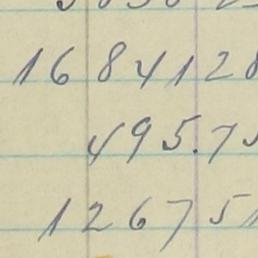 1684128
495.75
126751